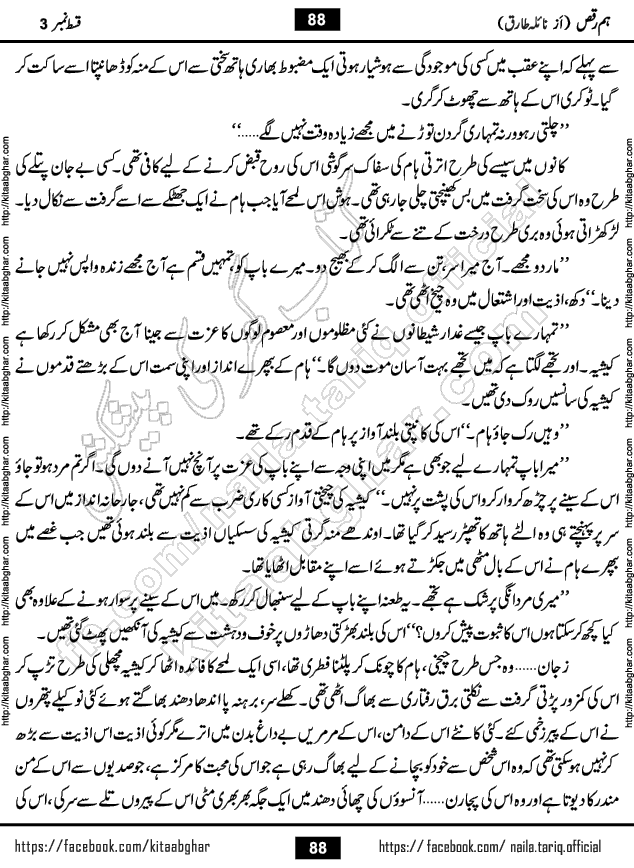 ہم رقص (از نائلہ طارق)
88
قسط نمبر 3
سے پہلے کہ اپنے عقب میں کسی کی موجودگی سے ہوشیار ہوتی ایک مضبوط بھاری ہاتھ سختی سے اس کے منہ کو ڈھانپتا اسے ساکت کر
گیا۔ ٹوکری اس کے ہاتھ سے چھوٹ کر گری۔
’’چلتی رہو ورنہ تمہاری گردن توڑنے میں مجھے زیادہ وقت نہیں لگے......‘‘
کانوں میں سیسے کی طرح اترتی ہام کی سفاک سرگوشی اس کی روح قبض کرنے کے لیے کافی تھی۔ کسی بے جان پتلے کی
طرح وہ اس کی سخت گرفت میں بس کھینچتی چلی جا رہی تھی۔ ہوش اس لمحے آیا جب ہام نے ایک جھٹکے سے اسے گرفت سے نکال دیا۔
لڑکھڑاتی ہوئی وہ بری طرح درخت کے تنے سے ٹکرائی تھی۔
’’مار دو مجھے۔ آج میرا سر، تن سے الگ کر کے بھیج دو۔ میرے باپ کو، تمہیں قسم ہے آج مجھے زندہ واپس نہیں جانے
دینا۔‘‘ دکھ، اذیت اور اشتعال میں وہ چیخ اٹھی تھی۔
’’تمہارے باپ جیسے غدار شیطانوں نے کئی مظلوموں اور معصوم لوگوں کا عزت سے جینا آج بھی مشکل کر رکھا ہے
کیشیہ۔ اور تجھے لگتا ہے کہ میں تجھے بہت آسان موت دوں گا۔‘‘ ہام کے بپھرے انداز اور اپنی سمت اس کے بڑھتے قدموں نے
کیشیہ کی سانسیں روک دی تھیں۔
’’وہیں رک جاؤ ہام۔‘‘ اس کی کانپتی بلند آواز پر ہام کے قدم رکے تھے۔
’’میرا باپ تمہارے لیے جو بھی ہے مگر میں اپنی وجہ سے اپنے باپ کی عزت پر آنچ نہیں آنے دوں گی۔ اگر تم مرد ہو تو جاؤ
اس کے سینے پر چڑھ کر وار کرو اس کی پشت پر نہیں۔‘‘ کیشیہ کی چیختی آواز کسی کاری ضرب سے کم نہیں تھی، جارحانہ انداز میں اس کے
سر پر پہنچتے ہی وہ الٹے ہاتھ کا تھپڑ رسید کر گیا تھا۔ اوندھے منہ گرتی کیشیہ کی سسکیاں اذیت سے بلند ہوئی تھیں جب غصے میں
بپھرے ہام نے اس کے بال مٹھی میں جکڑتے ہوئے اسے اپنے مقابل اٹھایا تھا۔
’’میری مردانگی پر شک ہے تجھے۔ یہ طعنہ اپنے باپ کے لیے سنبھال کر رکھ۔ میں اس کے سینے پر سوار ہونے کے علاوہ بھی
کیا کچھ کر سکتا ہوں اس کا ثبوت پیش کروں؟‘‘ اس کی بلند بھڑکتی دھاڑوں پر خوف و دہشت سے کیشیہ کی آنکھیں پھٹ گئی تھیں۔
’’زجان......وہ جس طرح چیخی، ہام کا چونک کر پلٹنا فطری تھا، اسی ایک لمحے کا فائدہ اٹھا کر کیشیہ مچھلی کی طرح تڑپ کر
اس کی کمزور پڑتی گرفت سے نکلتی برق رفتاری سے بھاگ اٹھی تھی۔ کھلے سر، برہنہ پا اندھا دھند بھاگتے ہوئے کئی نوکیلے پتھروں
نے اس کے پیر زخمی کئے۔ کئی کانٹے اس کے دامن، اس کے مرمریں بے داغ بدن میں اترے مگر کوئی اذیت اس اذیت سے بڑھ
کر نہیں ہو سکتی تھی کہ وہ اس شخص سے خود کو بچانے کے لیے بھاگ رہی ہے جو اس کی محبت کا مرکز ہے، جو صدیوں سے اس کے من
مندر کا دیوتا ہے اور وہ اس کی پجارن......آنسوؤں کی چھائی دھند میں ایک جگہ بھربھری مٹی اس کے پیروں تلے سے سرکی، اس کی
https://facebook.com/kitaabghar
88
https://facebook.com/ naila.tariq.official
http://kitaabghar.com http://kitaabghar.com http://kitaabghar.com http://kitaabghar.com http://kitaabghar.com http://kitaabghar.com
http://kitaabghar.com http://kitaabghar.com http://kitaabghar.com http://kitaabghar.com http://kitaabghar.com http://kitaabghar.com
کتاب گھر کی پیشکش
fb.com/naila.tariq.official
kitaabghar.com